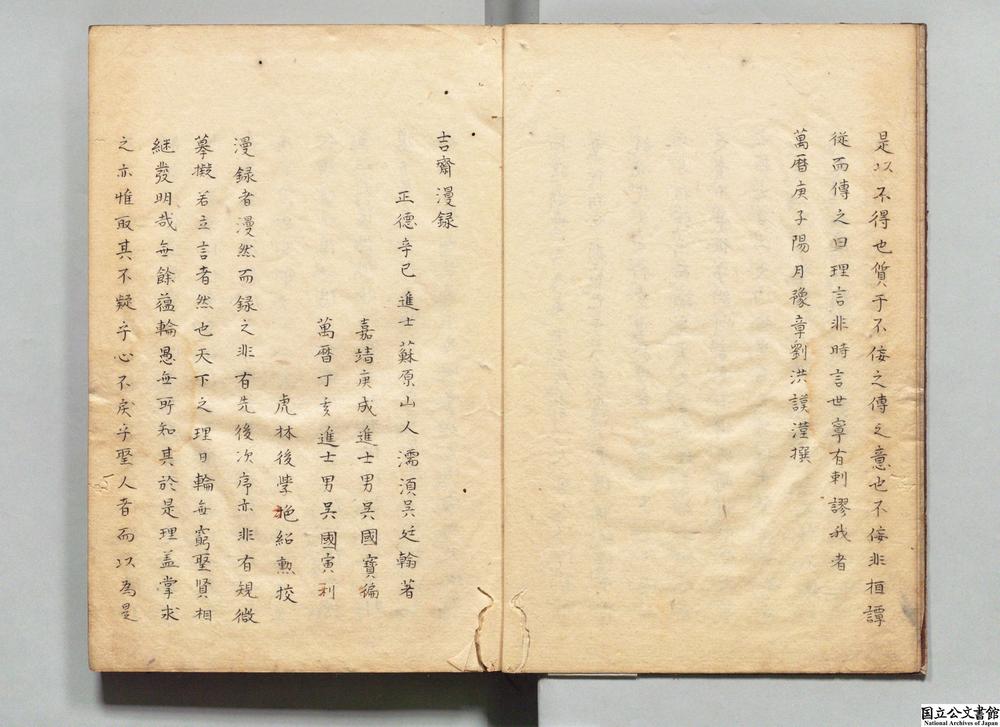 是以不得也質于不佞之傳之意也不佞非桓譚
從而傳之曰理言非時言世寧有刺謬我者
萬曆庚子陽月豫章劉洪謨漌撰
吉齋漫録
正德辛巳進士蘇原山人濡湏吴廷翰著
嘉靖庚戌進士男吴國寶編
萬曆丁亥進士男吴國寅刋
虎林後學 紹勲挍
漫録者漫然而録之非有先後次序亦非有規微
摹擬若立言者然也天下之理日輪無窮聖賢相
継發明哉無餘蕴輪愚無所知其於是理盖掌求
之亦惟取其不疑乎心不戾乎聖人者而以為是
国立公文書館
National Archives of Japan